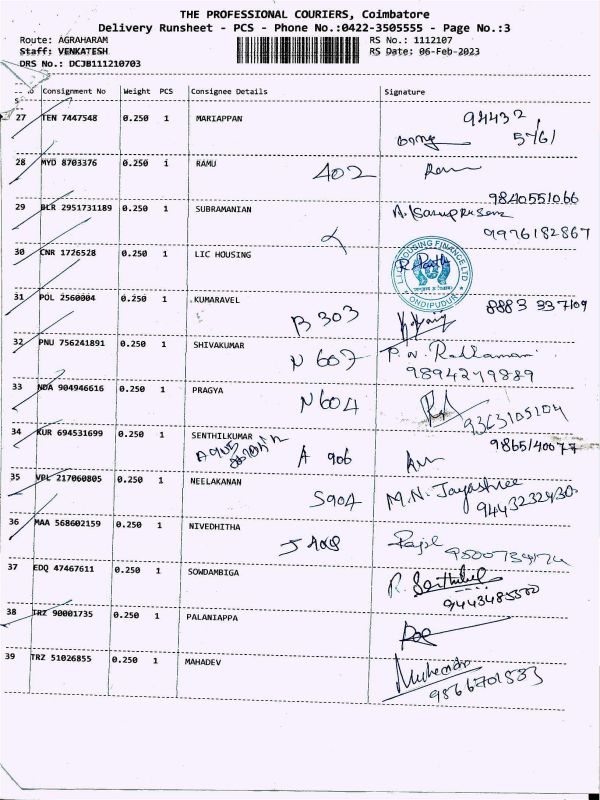 THE PROFESSIONAL COURIERS, Coimbatore
Delivery Runsheet - PCS - Phone No.:0422-3505555 - Page No.:3
Route: AGRAHARAM RS No.: 1112107
Staff: VENKATESH RS Date: 06-Feb-2023
DRS No.: DCJB111210703
Consignment No Weight PCS Consignee Details Signature
27 TEN 7447548 0.250 1 MARIAPPAN 94432
5761
28 MYD 8703376 0.250 1 RAMU 402
9840551066
29 BLR 2951731189 0.250 1 SUBRAMANIAN
9976182867
30 CNR 1726528 0.250 1 LIC HOUSING LIC HOUSING FINANCE LTD ONDIPUDUR
31 POL 2560004 0.250 1 KUMARAVEL B 303 8883 337109
32 PNU 756241891 0.250 1 SHIVAKUMAR N 607
9894279889
33 NDA 904946616 0.250 1 PRAGYA N 604 9363105104
34 KUR 694531699 0.250 1 SENTHILKUMAR A 906 9865140077
35 VPL 217060805 0.250 1 NEELAKANAN S904 M.N. Jayashree
36 MAA 568602159 0.250 1 NIVEDHITHA
37 EDQ 47467611 0.250 1 SOWDAMBIGA R. Senthilvel
9443485500
38 TRZ 90001735 0.250 1 PALANIAPPA
39 TRZ 51026855 0.250 1 MAHADEV
9566701833